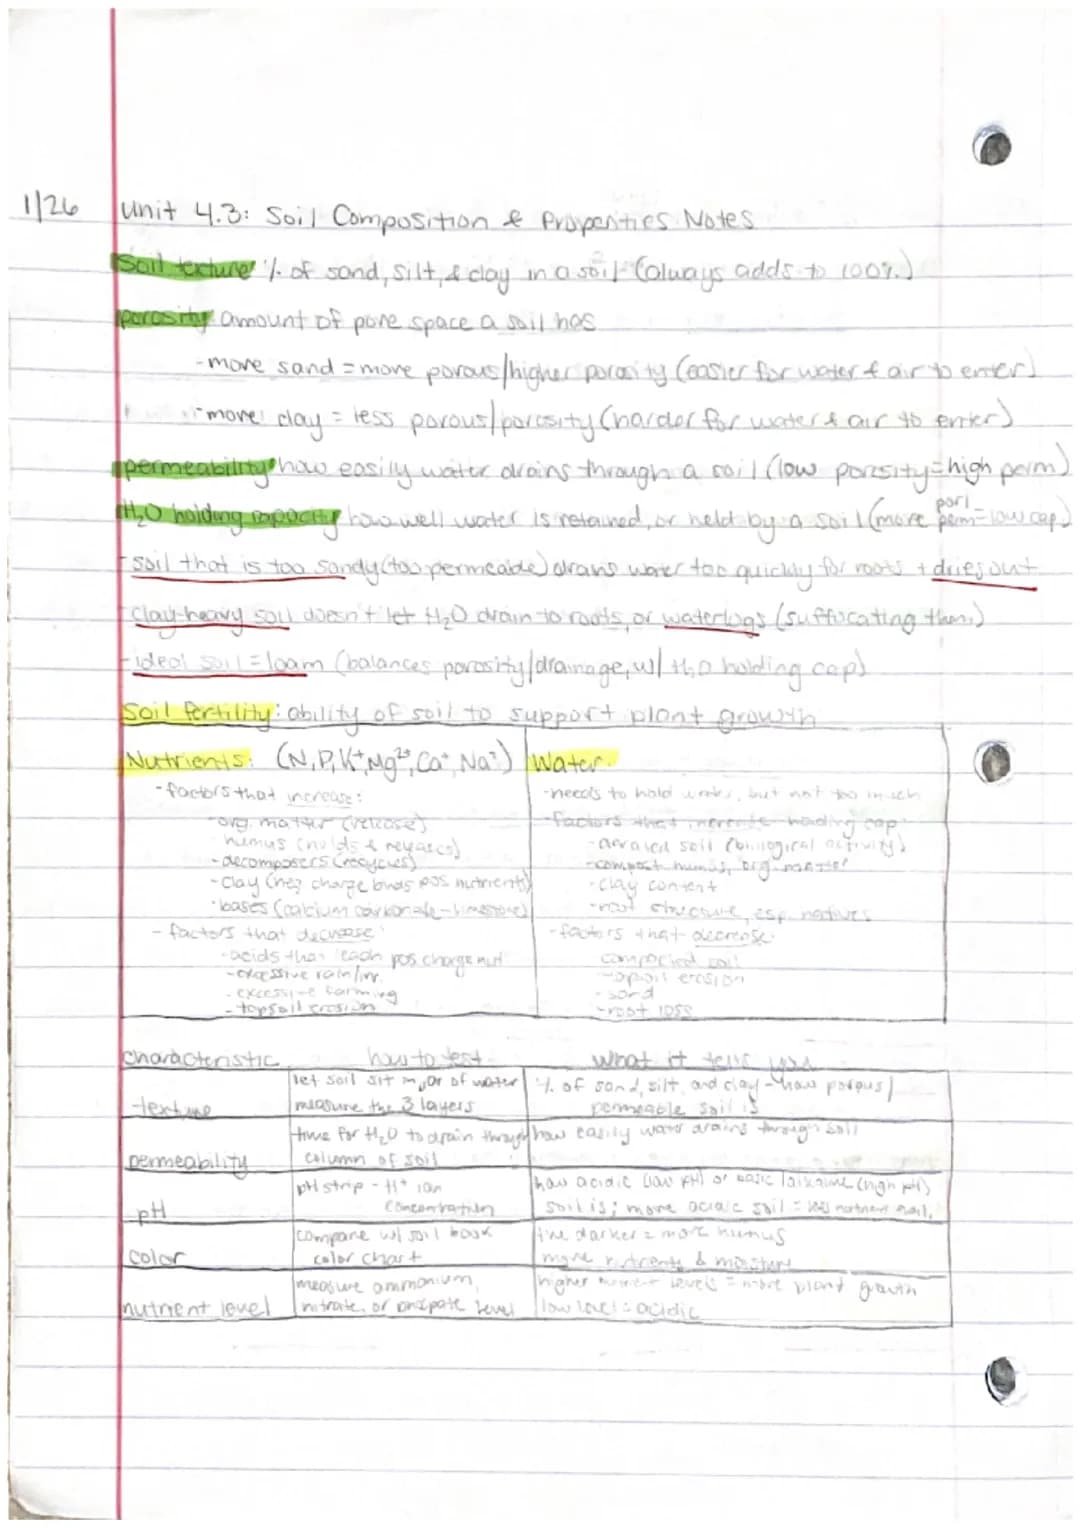 1/26 Unit 4.3: Soil Composition & Properties Notes
Soil texture % of sand, silt, & clay in a soil (always adds to 100%)
porosity: amount of pore space a soil has
-more sand = more porous/higher porosity (easier for water & air to enter)
-more clay = less porous/porosity (harder for water & air to enter)
permeability: how easily water drains through a soil (low porosity=high perm)
H₂O holding capacity how well water is retained, or held by a soil (more por/perm=low cap)
-soil that is too sandy (too permeable) drains water too quickly for roots + dries out
-clay-heavy soil doesn't let H₂O drain to roots, or waterlogs (suffocating them)
-ideal soil = loam (balances porosity/drainage, w/ H₂O holding cap)
Soil fertility: ability of soil to support plant growth
Nutrients: (N, P, K⁺, Mg²⁺, Ca⁺, Na⁺)
-factors that increase:
-org. matter (release)
humus (holds & releases)
-decomposers (recycles)
-clay (neg charge binds pos nutrients)
-bases (calcium carbonate-limestone)
-factors that decrease:
-acids that leach pos charge nut
-excessive rain/irr.
-excessive farming
-topsoil erosion
Water:
-needs to hold water, but not too much
-factors that increase holding cap:
-aerated soil (biological activity)
-compost, humus, org. matter
-clay content
-root structure, esp. natives
-factors that decrease:
compacted soil
-topsoil erosion
-sand
-root loss
characteristic how to test what it tells you
texture
let soil sit in jar of water
measure the 3 layers
% of sand, silt, and clay - how porous/
permeable soil is
permeability
time for H₂O to drain through
column of soil
how easily water drains through soil
pH
pH strip - H⁺ ion
concentration
how acidic (low pH) or basic/alkaline (high pH)
soil is; more acidic soil = less nutrient avail.
color
compare w/ soil book
color chart
the darker = more humus
more nutrients & moisture
nutrient level
measure ammonium,
nitrate, or level
higher nutrient levels = more plant growth
low level = acidic